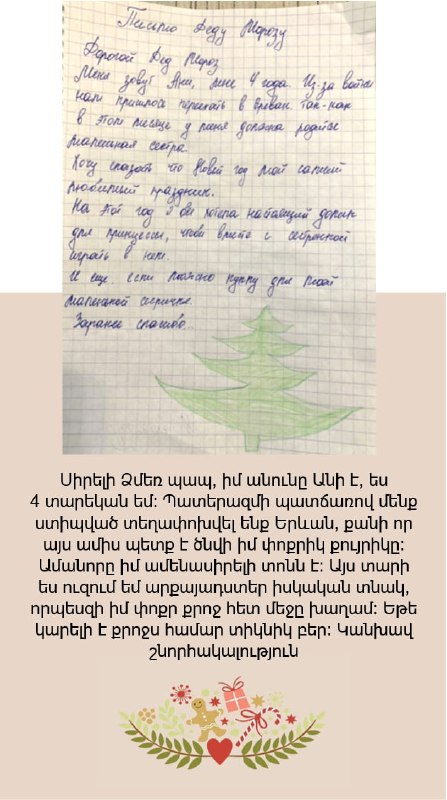 Письмо Деду Морозу
Дорогой Дед Мороз
Меня зовут Ани, мне 4 года. Из-за войны
нам пришлось переехать в Ереван так-как
в этом месяце у меня должна родится
маленькая сестра.
Хочу сказать что Новый год мой самый
любимый праздник.
На этот год я бы хотела настоящий домик
для принцессы, чтобы вместе с сестренкой
играть в нем.
И еще если можно куклу для моей
маленькой сестрички.
Заранее спасибо..
Սիրելի Ձմեռ պապ, իմ անունը Անի է, ես
4 տարեկան եմ: Պատերազմի պատճառով մենք
ստիպված տեղափոխվել ենք Երևան, քանի որ
այս ամիս պետք է ծնվի իմ փոքրիկ քույրիկը:
Ամանորը իմ ամենասիրելի տոնն է: Այս տարի
ես ուզում եմ արքայադստեր իսկական տնակ,
որպեսզի իմ փոքր քրոջ հետ մեջը խաղամ: Եթե
կարելի է քրոջս համար տիկնիկ բեր: Կանխավ
շնորհակալություն